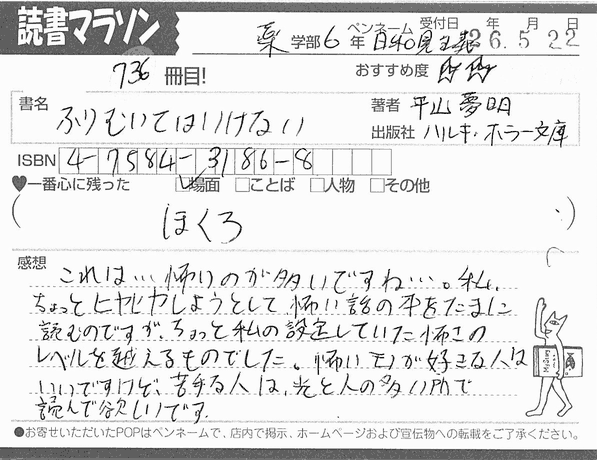 読書マラソン
薬 学部 6 年 ペンネーム 日和見主義 受付日 年 月 日
26.5.22
736 冊目! おすすめ度
書名 ふりむいてはいけない
著者 平山夢明
出版社 ハルキ・ホラー文庫
ISBN 4-7584-3186-8
♥一番心に残った □場面 □ことば □人物 □その他
( ほくろ )
感想
これは…怖いのが多いですね…。私、
ちょっとヒヤヒヤしようとして怖い話の本をたまに
読むのですが、ちょっと私の設定していた怖さの
レベルを越えるものでした。怖いモノが好きな人は
いいですけど、苦手な人は、光と人の多い所で
読んで欲しいです。
●お寄せいただいたPOPはペンネームで、店内で掲示、ホームページおよび宣伝物への転載をご了承ください。